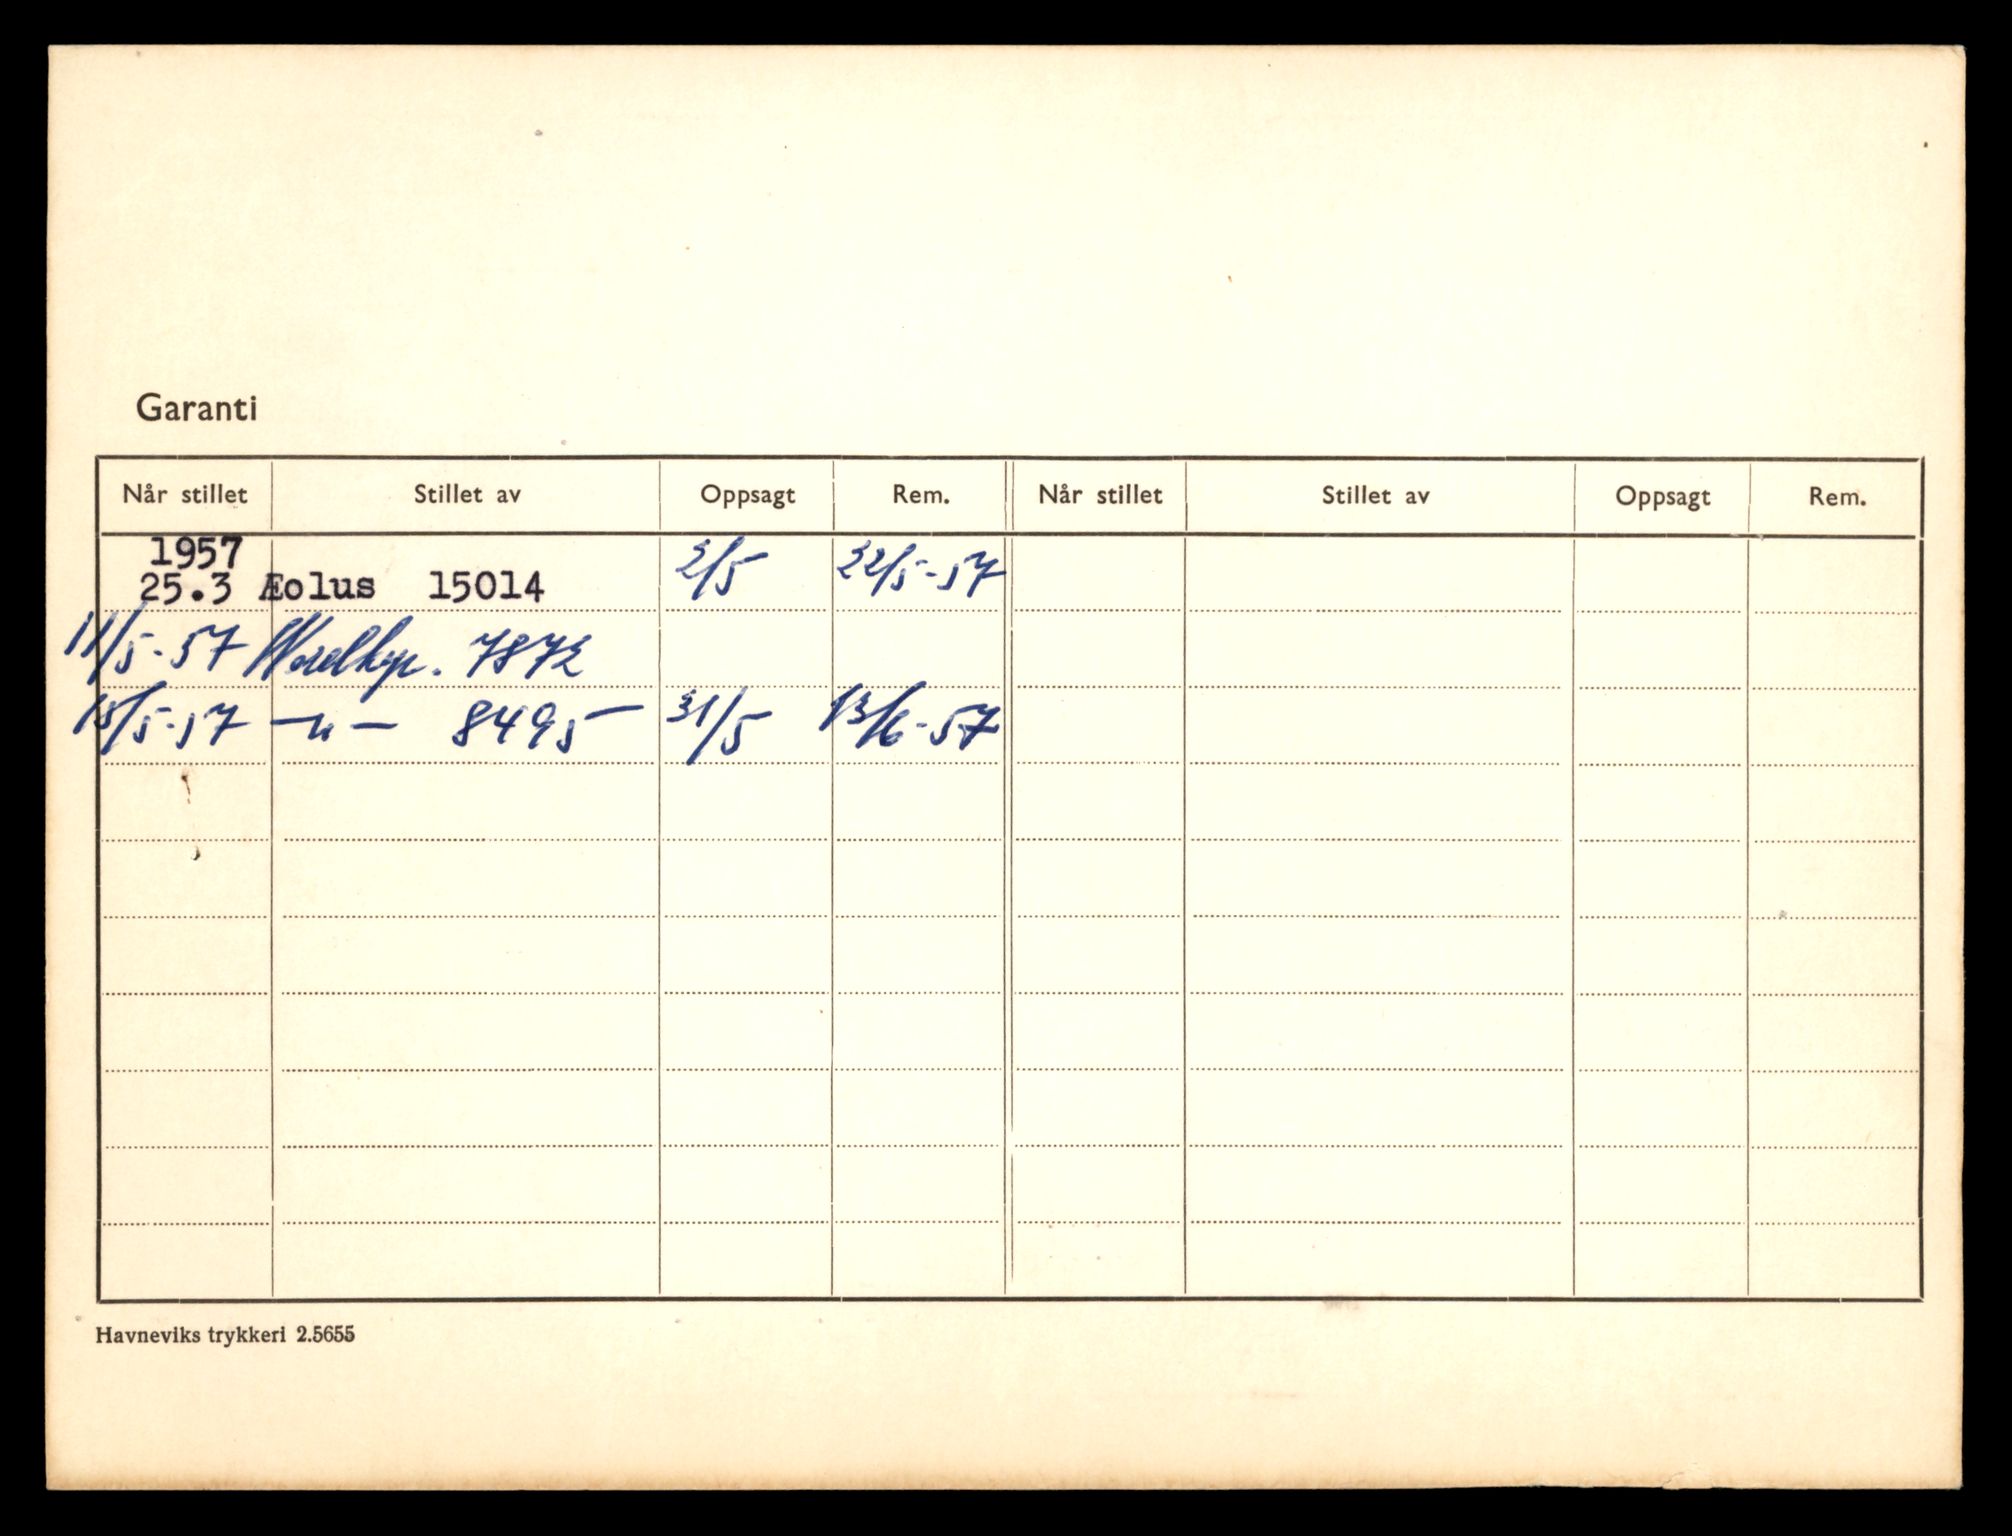 Garanti
Når stillet Stillet av Oppsagt Rem. Når stillet Stillet av Oppsagt Rem.
1957
25.3 Æolus 15014 2/5 22/5-57
11/5-57 7872
15/5-57 —"— 8495 31/5 13/6-57
Havneviks trykkeri 2.5655